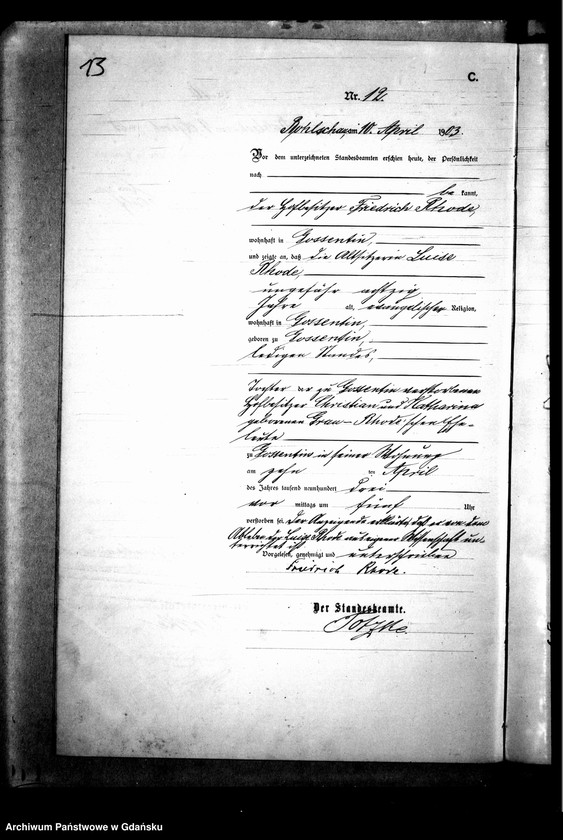 13
C.
Nr. 12.
Rohlschau, am 10. April 1903.
Vor dem unterzeichneten Standesbeamten erschien heute, der Persönlichkeit
nach
be kannt,
der Hofbesitzer Friedrich Rhode,
wohnhaft in Gossentin,
und zeigte an, daß die Altsitzerin Luise
Rhode,
ungefähr achtzig
Jahre alt, evangelischer Religion,
wohnhaft in Gossentin,
geboren zu Gossentin,
ledigen Standes,
Tochter der zu Gossentin verstorbenen
Hofbesitzer Christian und Katharina
geborenen Grau - Rhode'schen Ehe-
leute
zu Gossentin in seiner Wohnung
am zehn ten April
des Jahres tausend neunhundert drei
vor mittags um fünf Uhr
verstorben sei. Der Anzeigende erklärte, daß er von dem
Ableben der Luise Rhode aus eigener Wissenschaft un-
terrichtet ist
Vorgelesen, genehmigt und unterschrieben
Friedrich Rhode.
Der Standesbeamte.
Archiwum Państwowe w Gdańsku